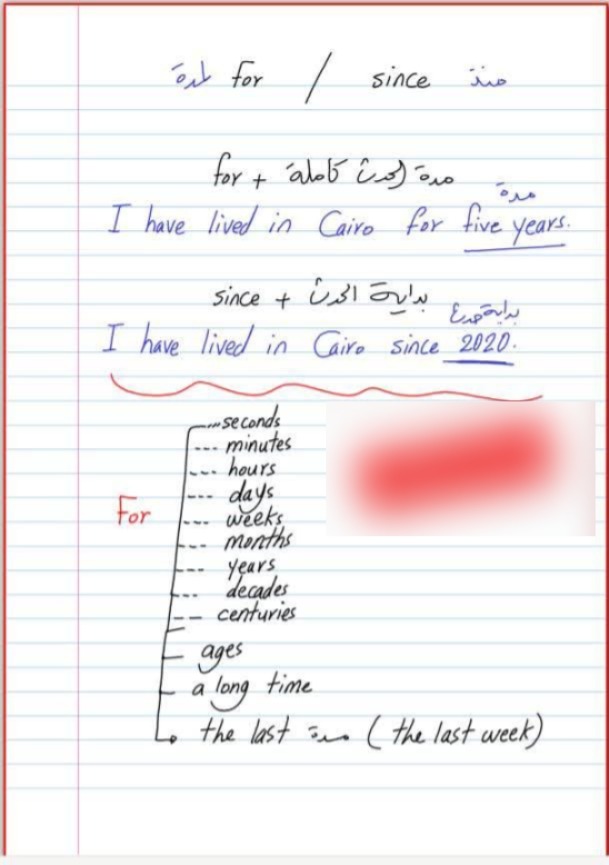 لمدة for / since منذ
for + مدة الحدث كاملة
مدة
I have lived in Cairo for five years.
since + بداية الحدث
بداية حدث
I have lived in Cairo since 2020.
For
... seconds
--- minutes
--- hours
--- days
--- weeks
--- months
--- years
--- decades
--- centuries
ages
a long time
the last مدة (the last week)